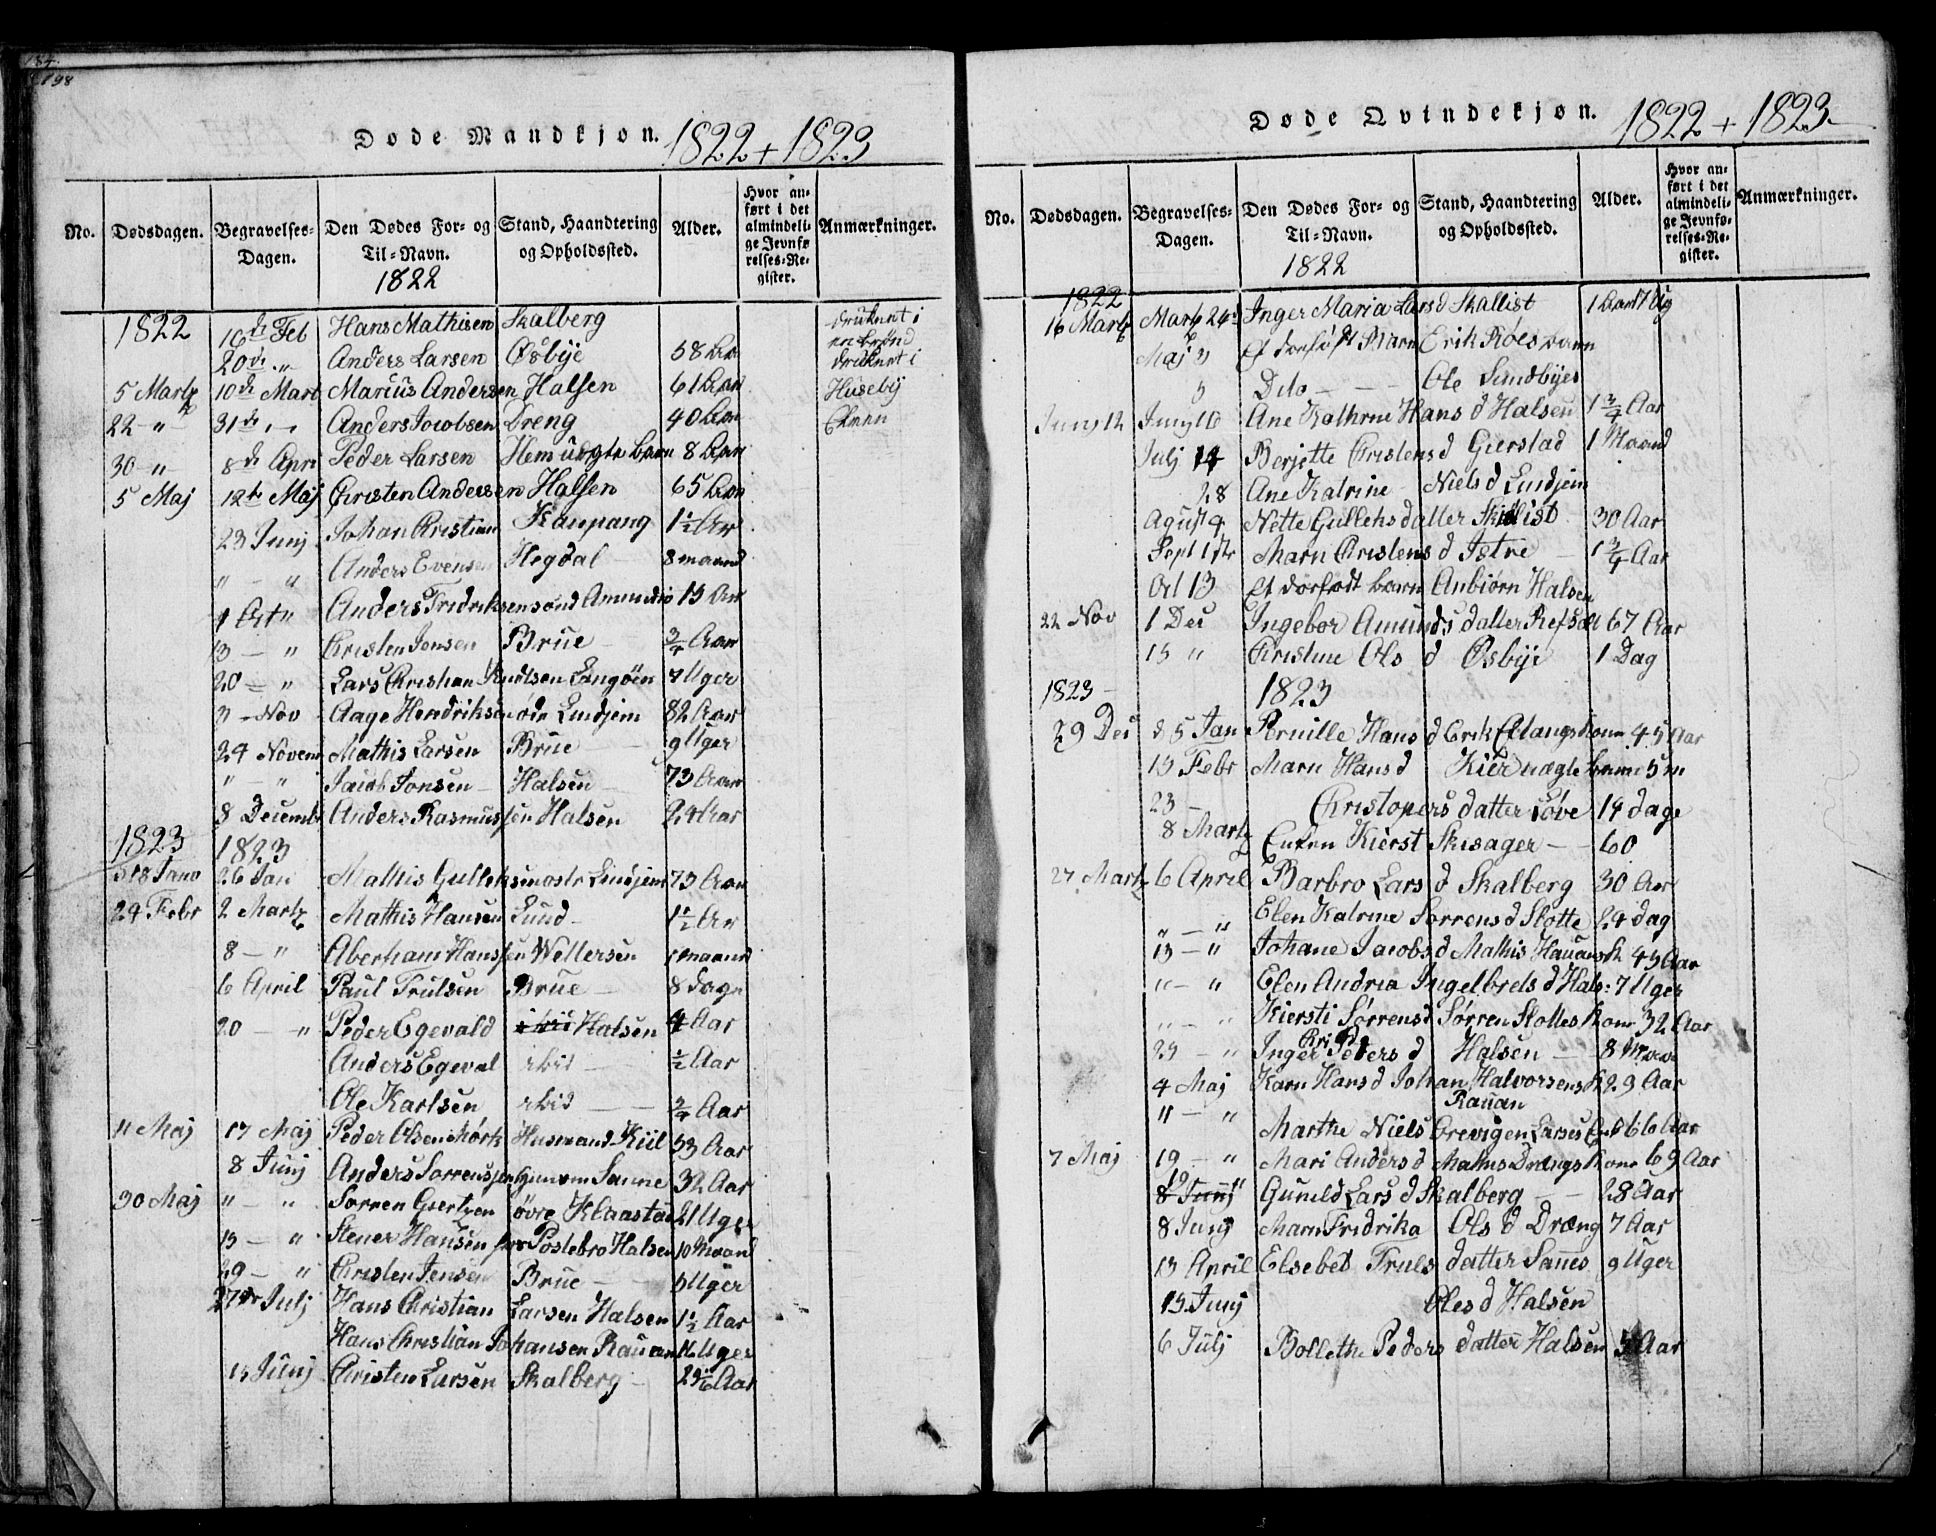 184.
198
Døde Mandkjøn. 1822 + 1823
No. Dødsdagen. Begravelses-Dagen. Den Dødes For- og Til-Navn. Stand, Haandtering og Opholdssted. Alder. Hvor anført i det almindelige Jevnførelses-Register. Anmærkninger.
1822
1822 16 de Feb Hans Mathisen Skalberg druknet i en brønd
20 de " Anders Larsen Øsbye 58 Aar druknet i
5 Martz 10 de Mart Marius Andersen Halsen 61 Aar Huseby
22 - " - 31 de " Anders Jacobsen Dreng 40 Aar
30 - " 8 de Apri Peder Larsen Hem uægte barn 8 Aar
5 Maj 12te Maj Christen Andersen Halsen 65 Aar
23 Junj Johan Cristian Kaupang 1½ Aar
" - " Anders Evensen Hegdal 8 maand
" Anders Fridriksen 15 Aar
13 - " Cristen Jensen Brue ¾ Aar
20 - " Lars Christian Knutsen Langöen Uger
3 - Nov Aage Hendriksen Lindjem 82 Aar
24 Novem Mathis Larsen Brue 9 Uger
" - " Jacob Jonsen Halsen 73 Aar
8 Decembr Anders Rasmussen Halsen 24 Aar
1823 1823
18 Janv 26 Jan Mathis Gulleksen Lindjem 73 Aar
24 Febr 2 Martz Mathis Hansen Lund 1½ Aar
8 - " Aberham Hanssen Wellersen maaned
6 April Paul Trulsen Brue 8 dage
20 - " Peder Egevald Halsen 4 Aar
Anders Egeval ½ Aar
Ole Karlsen ¾ Aar
11 Maj 17 Maj Peder Olsen Mørk Husmand Kiil 53 Aar
8 Junj Anders Sørrenssen Sanne 32 Aar
30 Maj " " Sørren Giertsen övre Klaastad 21 Uger
13 - " Stener Hansen Postebro Halsen 10 Maand
29 - " Cristen Jensen Brue Uger
27de Julj Hans Christian Larsen Halsen 1½ Aar
Hans Christian Johansen Rauan 16 Uger
15 Junj Cristen Larsen Skalberg
Døde Qvindekjøn. 1822 + 1823
No. Dødsdagen. Begravelses-Dagen. Den Dødes For- og Til-Navn. Stand, Haandtering og Opholdssted. Alder. Hvor anført i det almindelige Jevnførelses-Register. Anmærkninger.
1822
1822
16 Martz Martz 24 Inger Maria Lars d Skallist
Maj Et dørføt Barn Erik Röes barn
Dito - - Ole Sundbyes
Junj 12 Junj 16 Ane Kathrne Hans d Halsen 1¾ Aar
Julj 14 Berjette Cristens d Gierstad 1 Maand
28 Ane Katrine Niels d Lindjem
Agust 4 Nette Gulleksdatter Skallist 30 Aar
Sept 1ste Marn Cristens d Istre 1¾ Aar
Oct 13 Et dørfødt barn Anbiørn Halsen
22 Nov 1 Des Ingebor Amunds datter Refsal 67 Aar
15 " Cristine Ols d Øsbye 1 Dag
1823 - 1823
29 Des d 5 Jan Pernille Hans d Erik Elangs Kone 45 Aar
15 Febr Marn Hans d Kier uægte barn 5 m
23 - Christopers datter Löve 14 dage
8 Martz Enken Kierst Skisager - - 60
27 Martz 6 April Barbro Lars d Skalberg 30 Aar
" - " Elen Katrine Sørrens d Slotte 24 dag
13 - " Johane Jacobs d Mathis Hauans K 43 Aar
" - " Elen Andria Ingelbrets d Hals: 7 Uger
" - " Kiersti Sørrens d Sørren Slottes Kone 32 Aar
Inger Peders d Halsen 8 Maa
4 Maj Karn Hans d Johan Halvorsens K 29 Aar
Rauan
" - " Marthe Niels Brevigen Larses Enk 66 Aar
7 Maj 19 - " Mari Anders d Mathis Drængs Kone 69 Aar
8 Junj Gunild Lars d Skalberg - - 28 Aar
8 Junj Marn Fridrika Ols d Dræng 7 Aar
13 April Elsebet Truls datter Sanes 9 Uger
15 Junj Oles d Halsen
6 Julj Bollethe Peders datter Halsen Aar